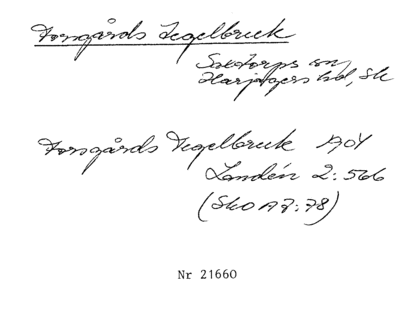 Forsgårds Tegelbruk
Saxtorps sn,
Harjagers hd, Sk
Forsgårds Tegelbruk AOY
Landén 2:566
(SkO A7:78)
Nr 21660